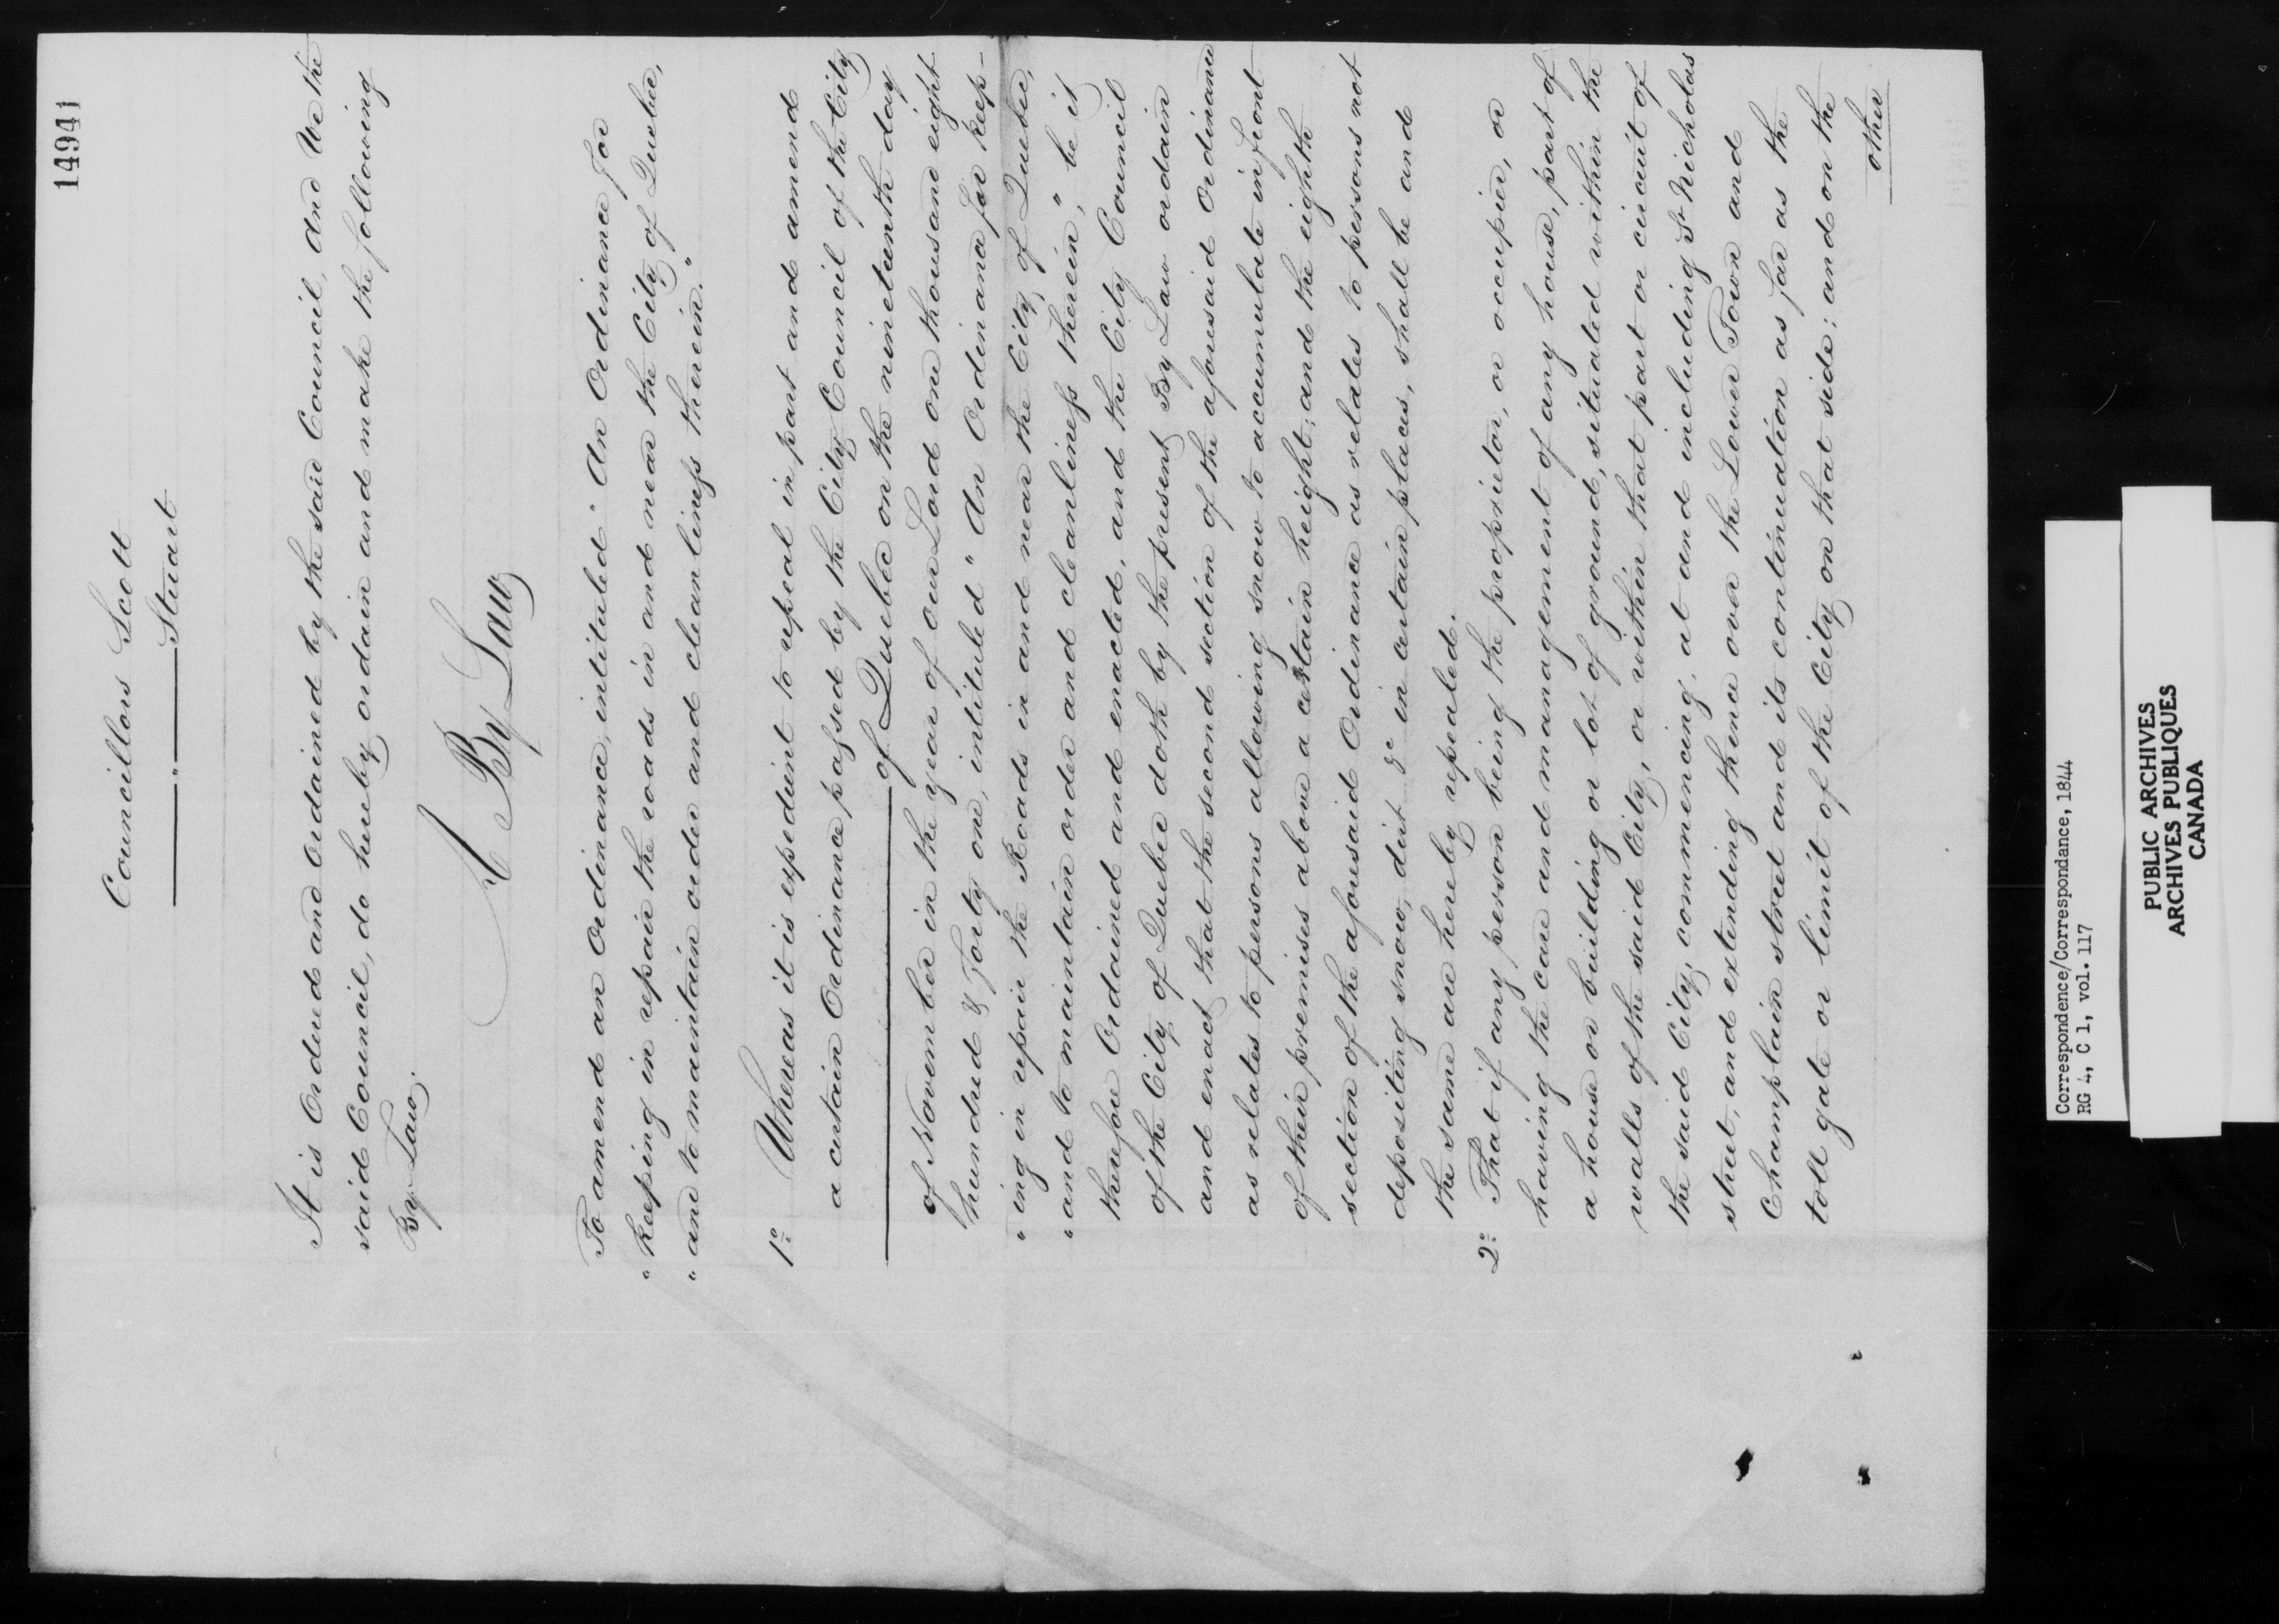 14941
Councillors Scott
" Stuart
It is Ordered and Ordained by the said Council, and We the
said Council, do hereby ordain and make the following
By Law.
A By Law
To amend an Ordinance, intituled "An Ordinance for
"keeping in repair the roads in and near the City of Quebec,
"and to maintain order and cleanliness therein."
1o Whereas it is expedient to repeal in part and amend
a certain Ordinance passed by the City Council of the City
of Quebec on the nineteenth day
of November in the year of our Lord one thousand eight
hundred & Forty one, intituled "An Ordinance for keep-
"ing in repair the Roads in and near the City of Quebec,
"and to maintain order and cleanliness therein," be it
therefore Ordained and enacted, and the City Council
of the City of Quebec doth by the present By Law ordain
and enact that the second section of the aforesaid Ordinance
as relates to persons allowing snow to accumulate in front
of their premises above a certain height; and the eighth
section of the aforesaid Ordinance as relates to persons not
depositing snow, dirt &c in certain places, shall be and
the same are hereby repealed.
2o That if any person being the proprietor, or occupier, or
having the care and management of any house, part of
a house or building or lot of ground, situated within the
walls of the said City, or within that part or circuit of
the said City, commencing, at and including St Nicholas
street, and extending thence over the Lower Town and
Champlain street and its continuation as far as the
toll gate or limit of the City on that side; and on the
other
Correspondence/Correspondance, 1844
RG 4, C 1, vol. 117
PUBLIC ARCHIVES
ARCHIVES PUBLIQUES
CANADA